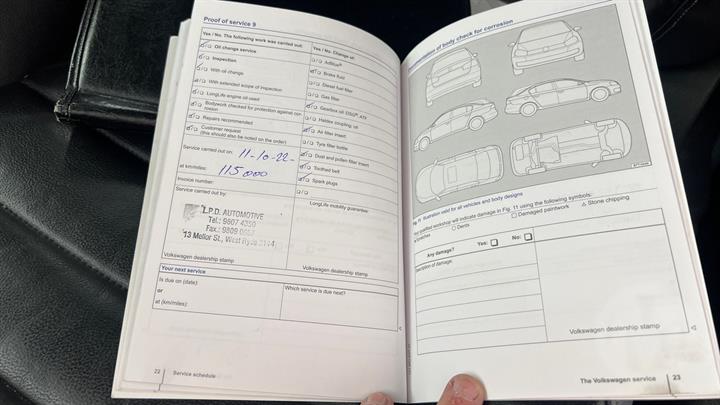 Proof of service 9
Yes / No. The following work was carried out:
Oil change service
Inspection
With oil change
With extended scope of inspection
LongLife engine oil used
Bodywork checked for protection against corrosion
Repairs recommended
Customer request
(this should also be noted on the order)
Service carried out on: 11-10-22
at km/miles: 115000
Invoice number:
Service carried out by:
L.P.D. AUTOMOTIVE
Tel.: 9807 4350
Fax.: 9809
13 Mellor St., West Ryde 2114
Volkswagen dealership stamp
Yes / No. Change of:
AdBlue®
Brake fluid
Diesel fuel filter
Gas filter
Gearbox oil DSG®, ATF
Haldex coupling oil
Air filter insert
Tyre filler bottle
Dust and pollen filter insert
Toothed belt
Spark plugs
LongLife mobility guarantee:
Volkswagen dealership stamp
Your next service
Is due on (date):
or
at (km/miles):
Which service is due next?
22 Service schedule
of body check for corrosion
Fig. 11 Illustration valid for all vehicles and body designs
qualified workshop will indicate damage in Fig. 11 using the following symbols:
Scratches Dents Damaged paintwork Stone chipping
Any damage? Yes: No:
Description of damage:
Volkswagen dealership stamp
The Volkswagen service 23